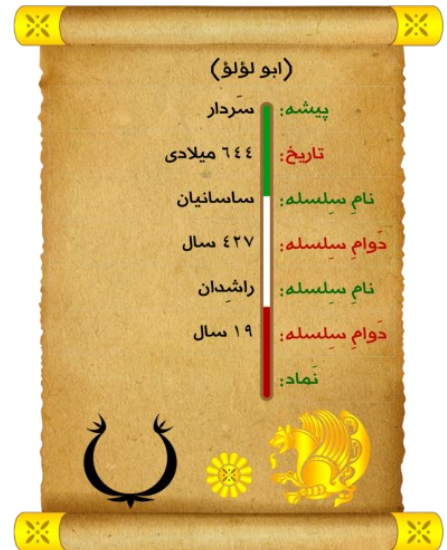 (ابو لؤلؤ)
پیشه: سَردار
تاریخ: ٦٤٤ میلادی
نامِ سِلسله: ساسانیان
دَوامِ سِلسله: ٤٢٧ سال
نامِ سِلسله: راشِدان
دَوامِ سِلسله: ١٩ سال
نَماد: